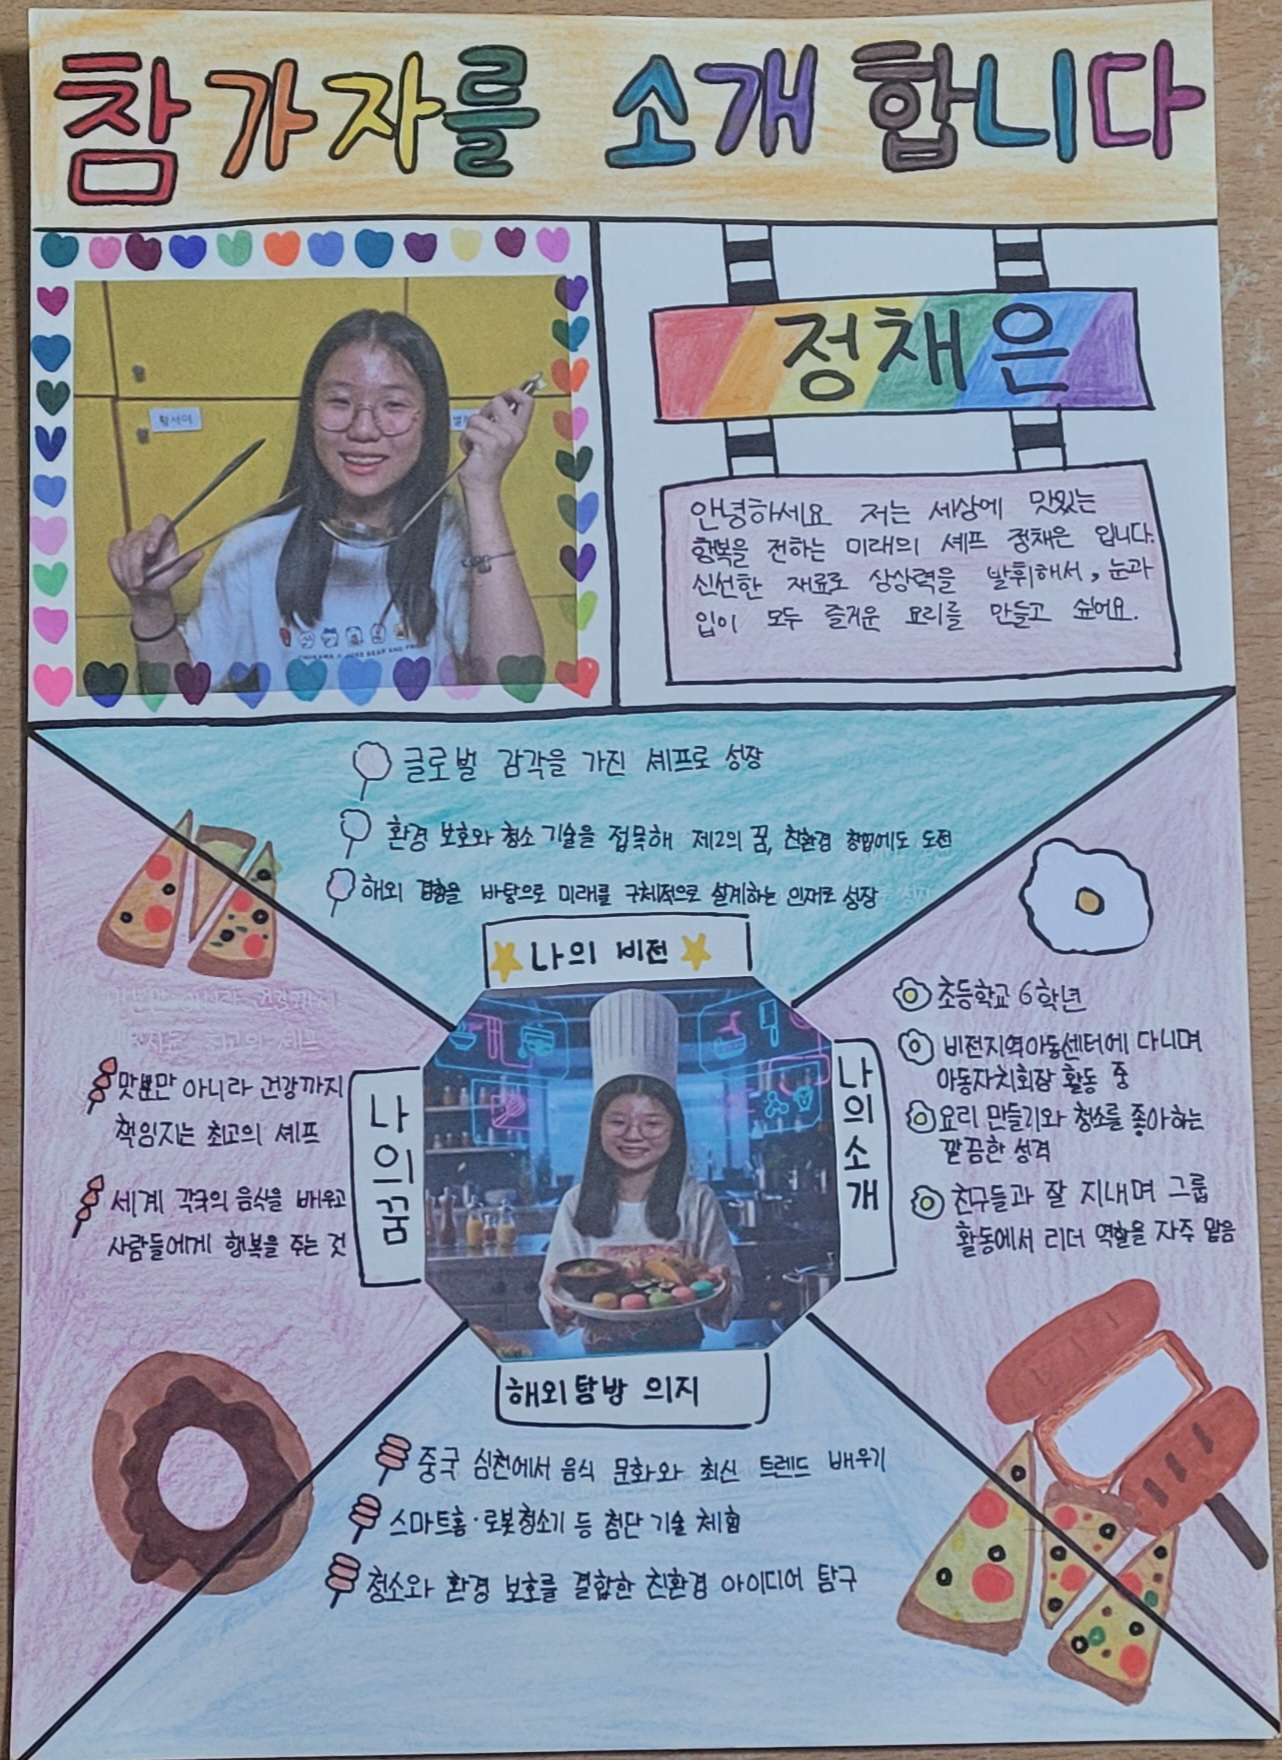 참가자를 소개합니다
정채은
안녕하세요 저는 세상에 맛있는
행복을 전하는 미래의 셰프 정채은 입니다.
신선한 재료로 상상력을 발휘해서, 눈과
입이 모두 즐거운 요리를 만들고 싶어요.
글로벌 감각을 가진 셰프로 성장
환경 보호와 청소 기술을 접목해 제2의 꿈, 친환경 창업에도 도전
해외 경험을 바탕으로 미래를 구체적으로 설계하는 인재로 성장
나의 비전
나의 꿈
맛뿐만 아니라 건강까지
책임지는 최고의 셰프
세계 각국의 음식을 배우고
사람들에게 행복을 주는 것
나의 소개
초등학교 6학년
비전지역아동센터에 다니며
아동자치회장 활동 중
요리 만들기와 청소를 좋아하는
깔끔한 성격
친구들과 잘 지내며 그룹
활동에서 리더 역할을 자주 맡음
해외탐방 의지
중국 심천에서 음식 문화와 최신 트렌드 배우기
스마트홈·로봇청소기 등 첨단 기술 체험
청소와 환경 보호를 결합한 친환경 아이디어 탐구